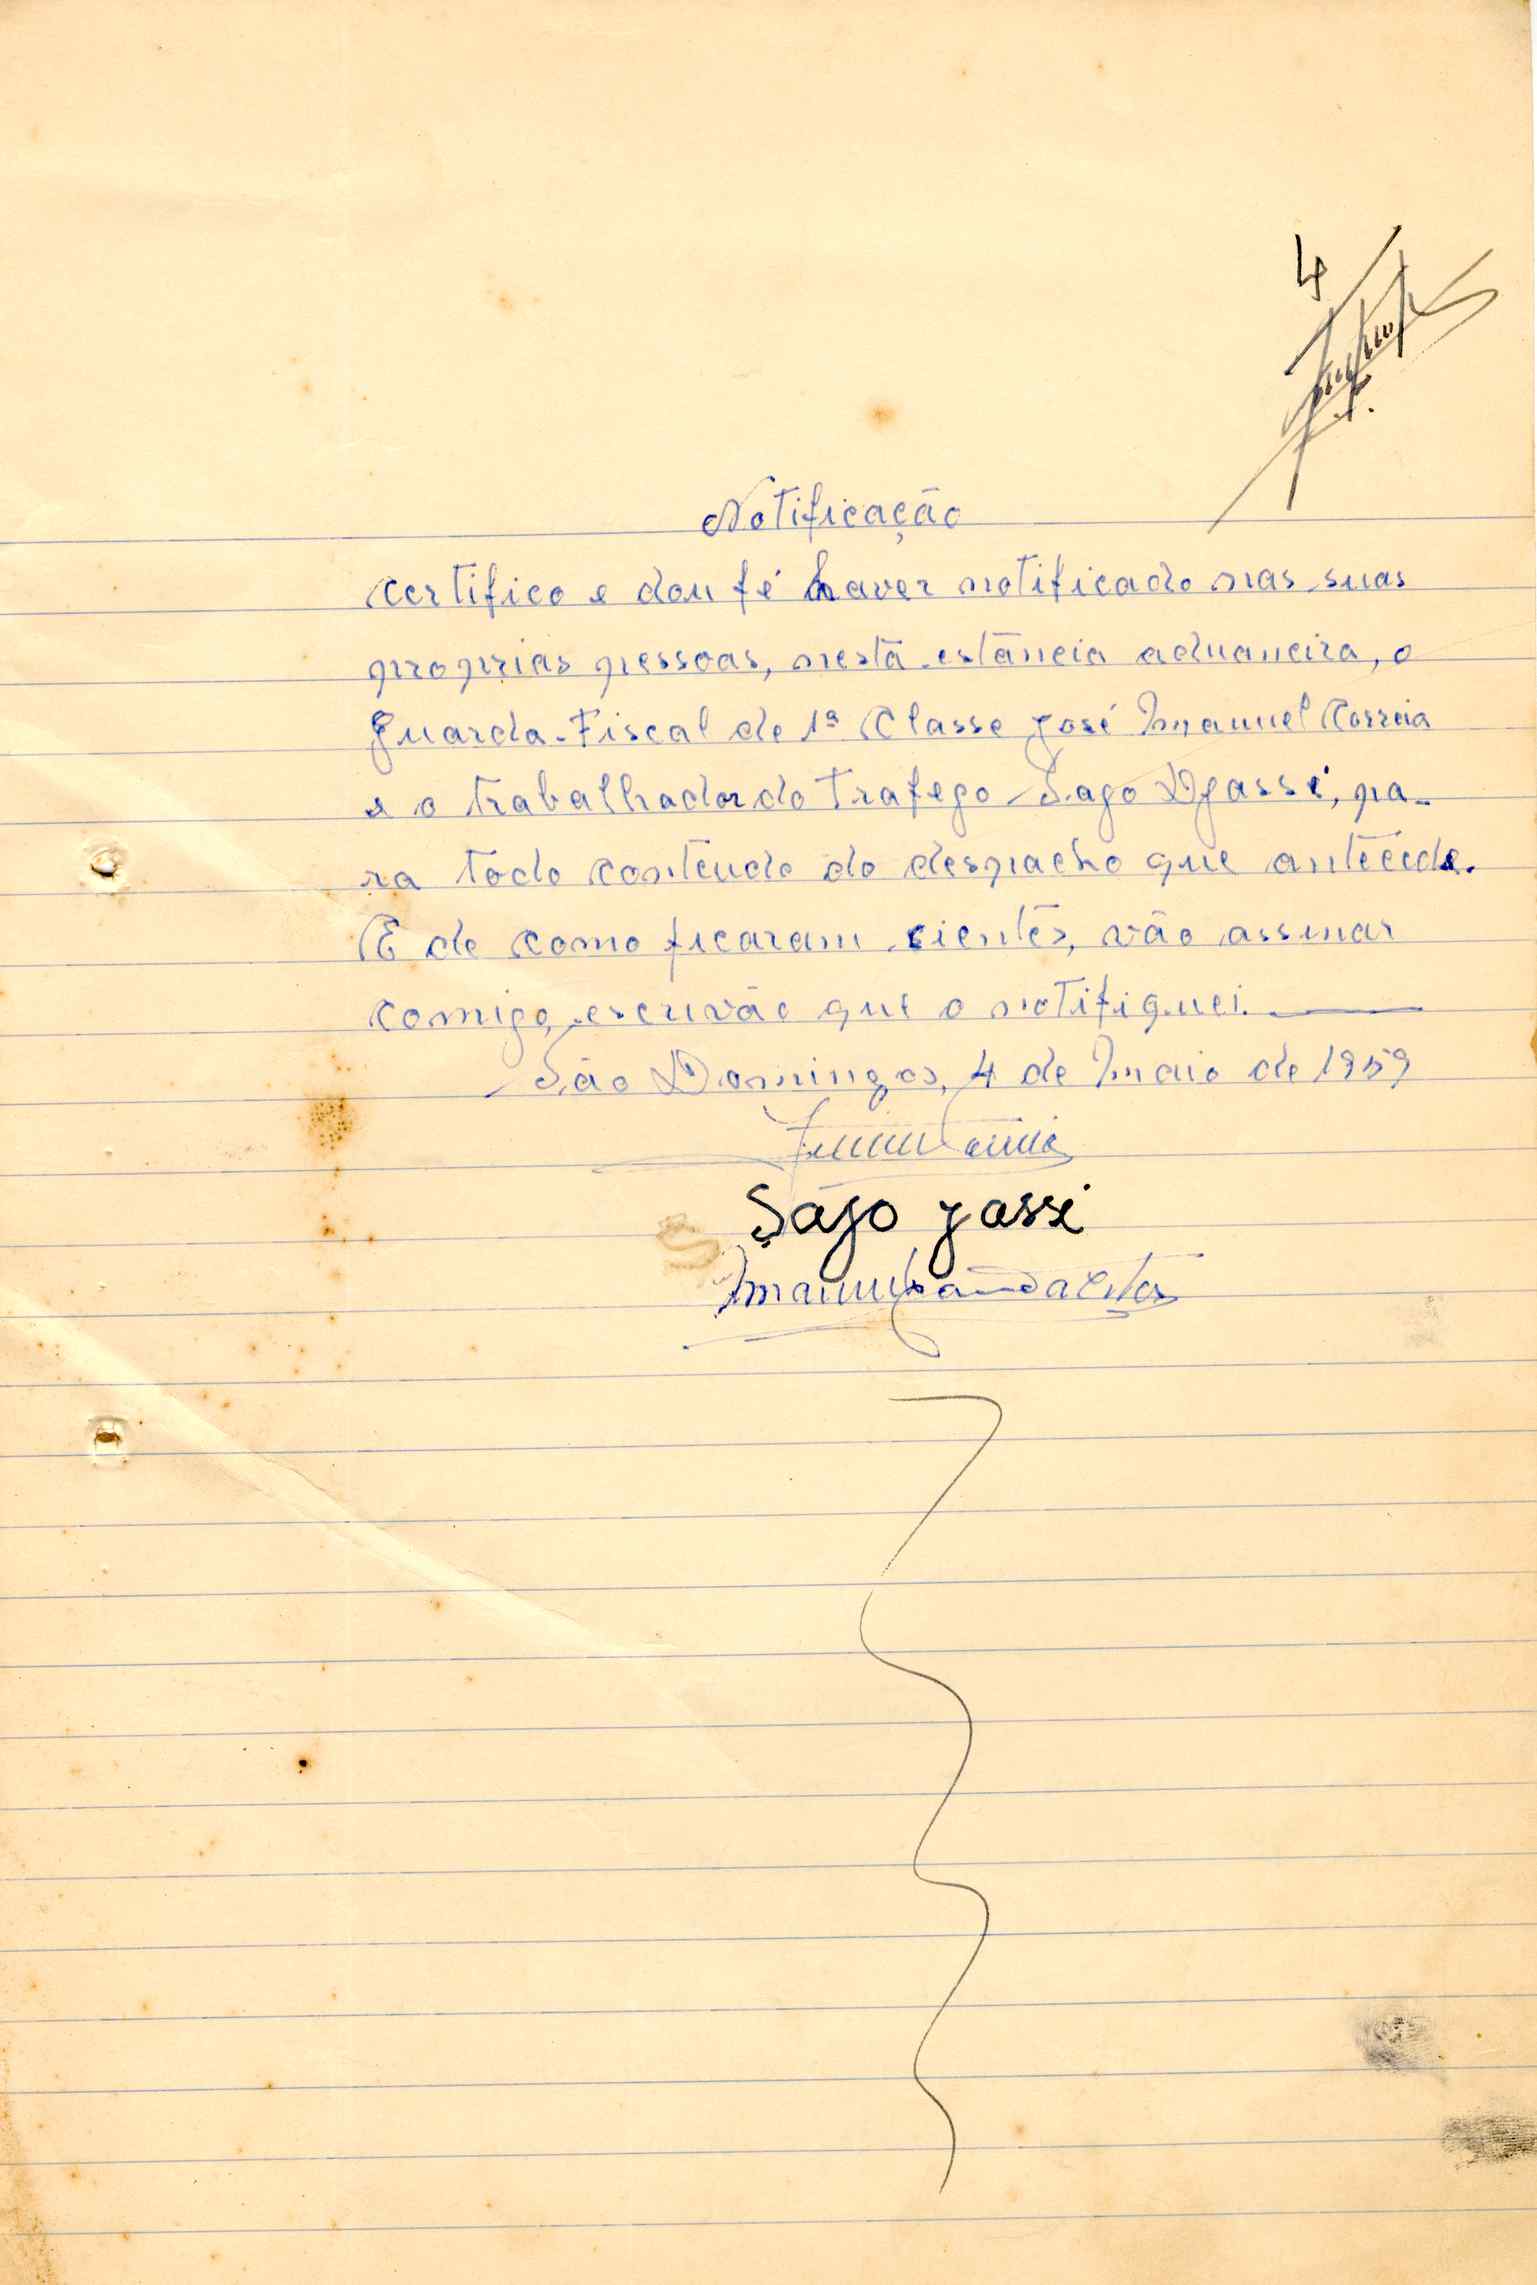 4
Notificação
Certifico e dou fé haver notificado nas suas
proprias pessoas, nesta estância aduaneira, o
Guarda-Fiscal de 1ª Classe José Manuel Correia
e o trabalhador do trafego Sago Djassi, pa-
ra todo conteudo do despacho que antecede.
E de como ficaram cientes, vão assinar
comigo, escrivão que o notifiquei.
São Domingos, 4 de Maio de 1959
Sago Jassi